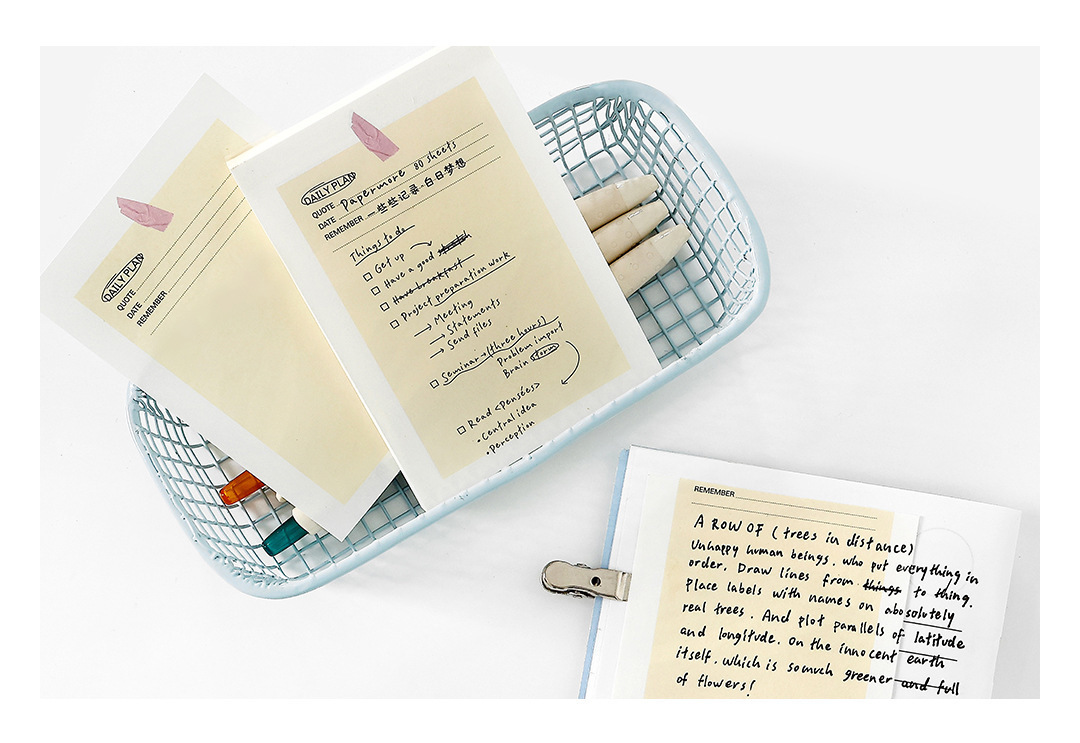 DAILY PLAN
QUOTE
DATE
REMEMBER
DAILY PLAN
QUOTE Papermore 80 sheets
DATE 一些些记录-白日梦想
REMEMBER
Things to do
Get up
Have a good
Have breakfast
Project preparation work
→ Meeting
→ Statements
→ Send files
Seminar → (three hours)
Problem import
Brain storm
Read <Pensées>
•Central idea
•Perception
REMEMBER
A ROW OF (trees in distance)
Unhappy human beings. who put everything in
order. Draw lines from things to thing.
Place labels with names on absolutely
real trees. And plot parallels of latitude
and longitude. On the innocent earth
itself. which is so much greener and full
of flowers!